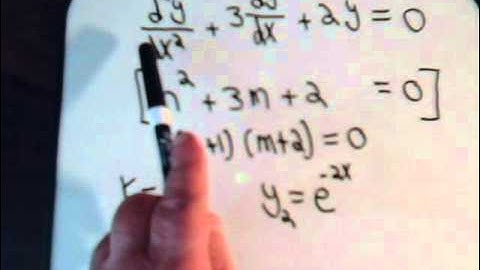 d²y/dx² + 3 dy/dx + 2y = 0
[m² + 3m + 2 = 0]
+1) (m+2) = 0
y₂ = e⁻²ˣ